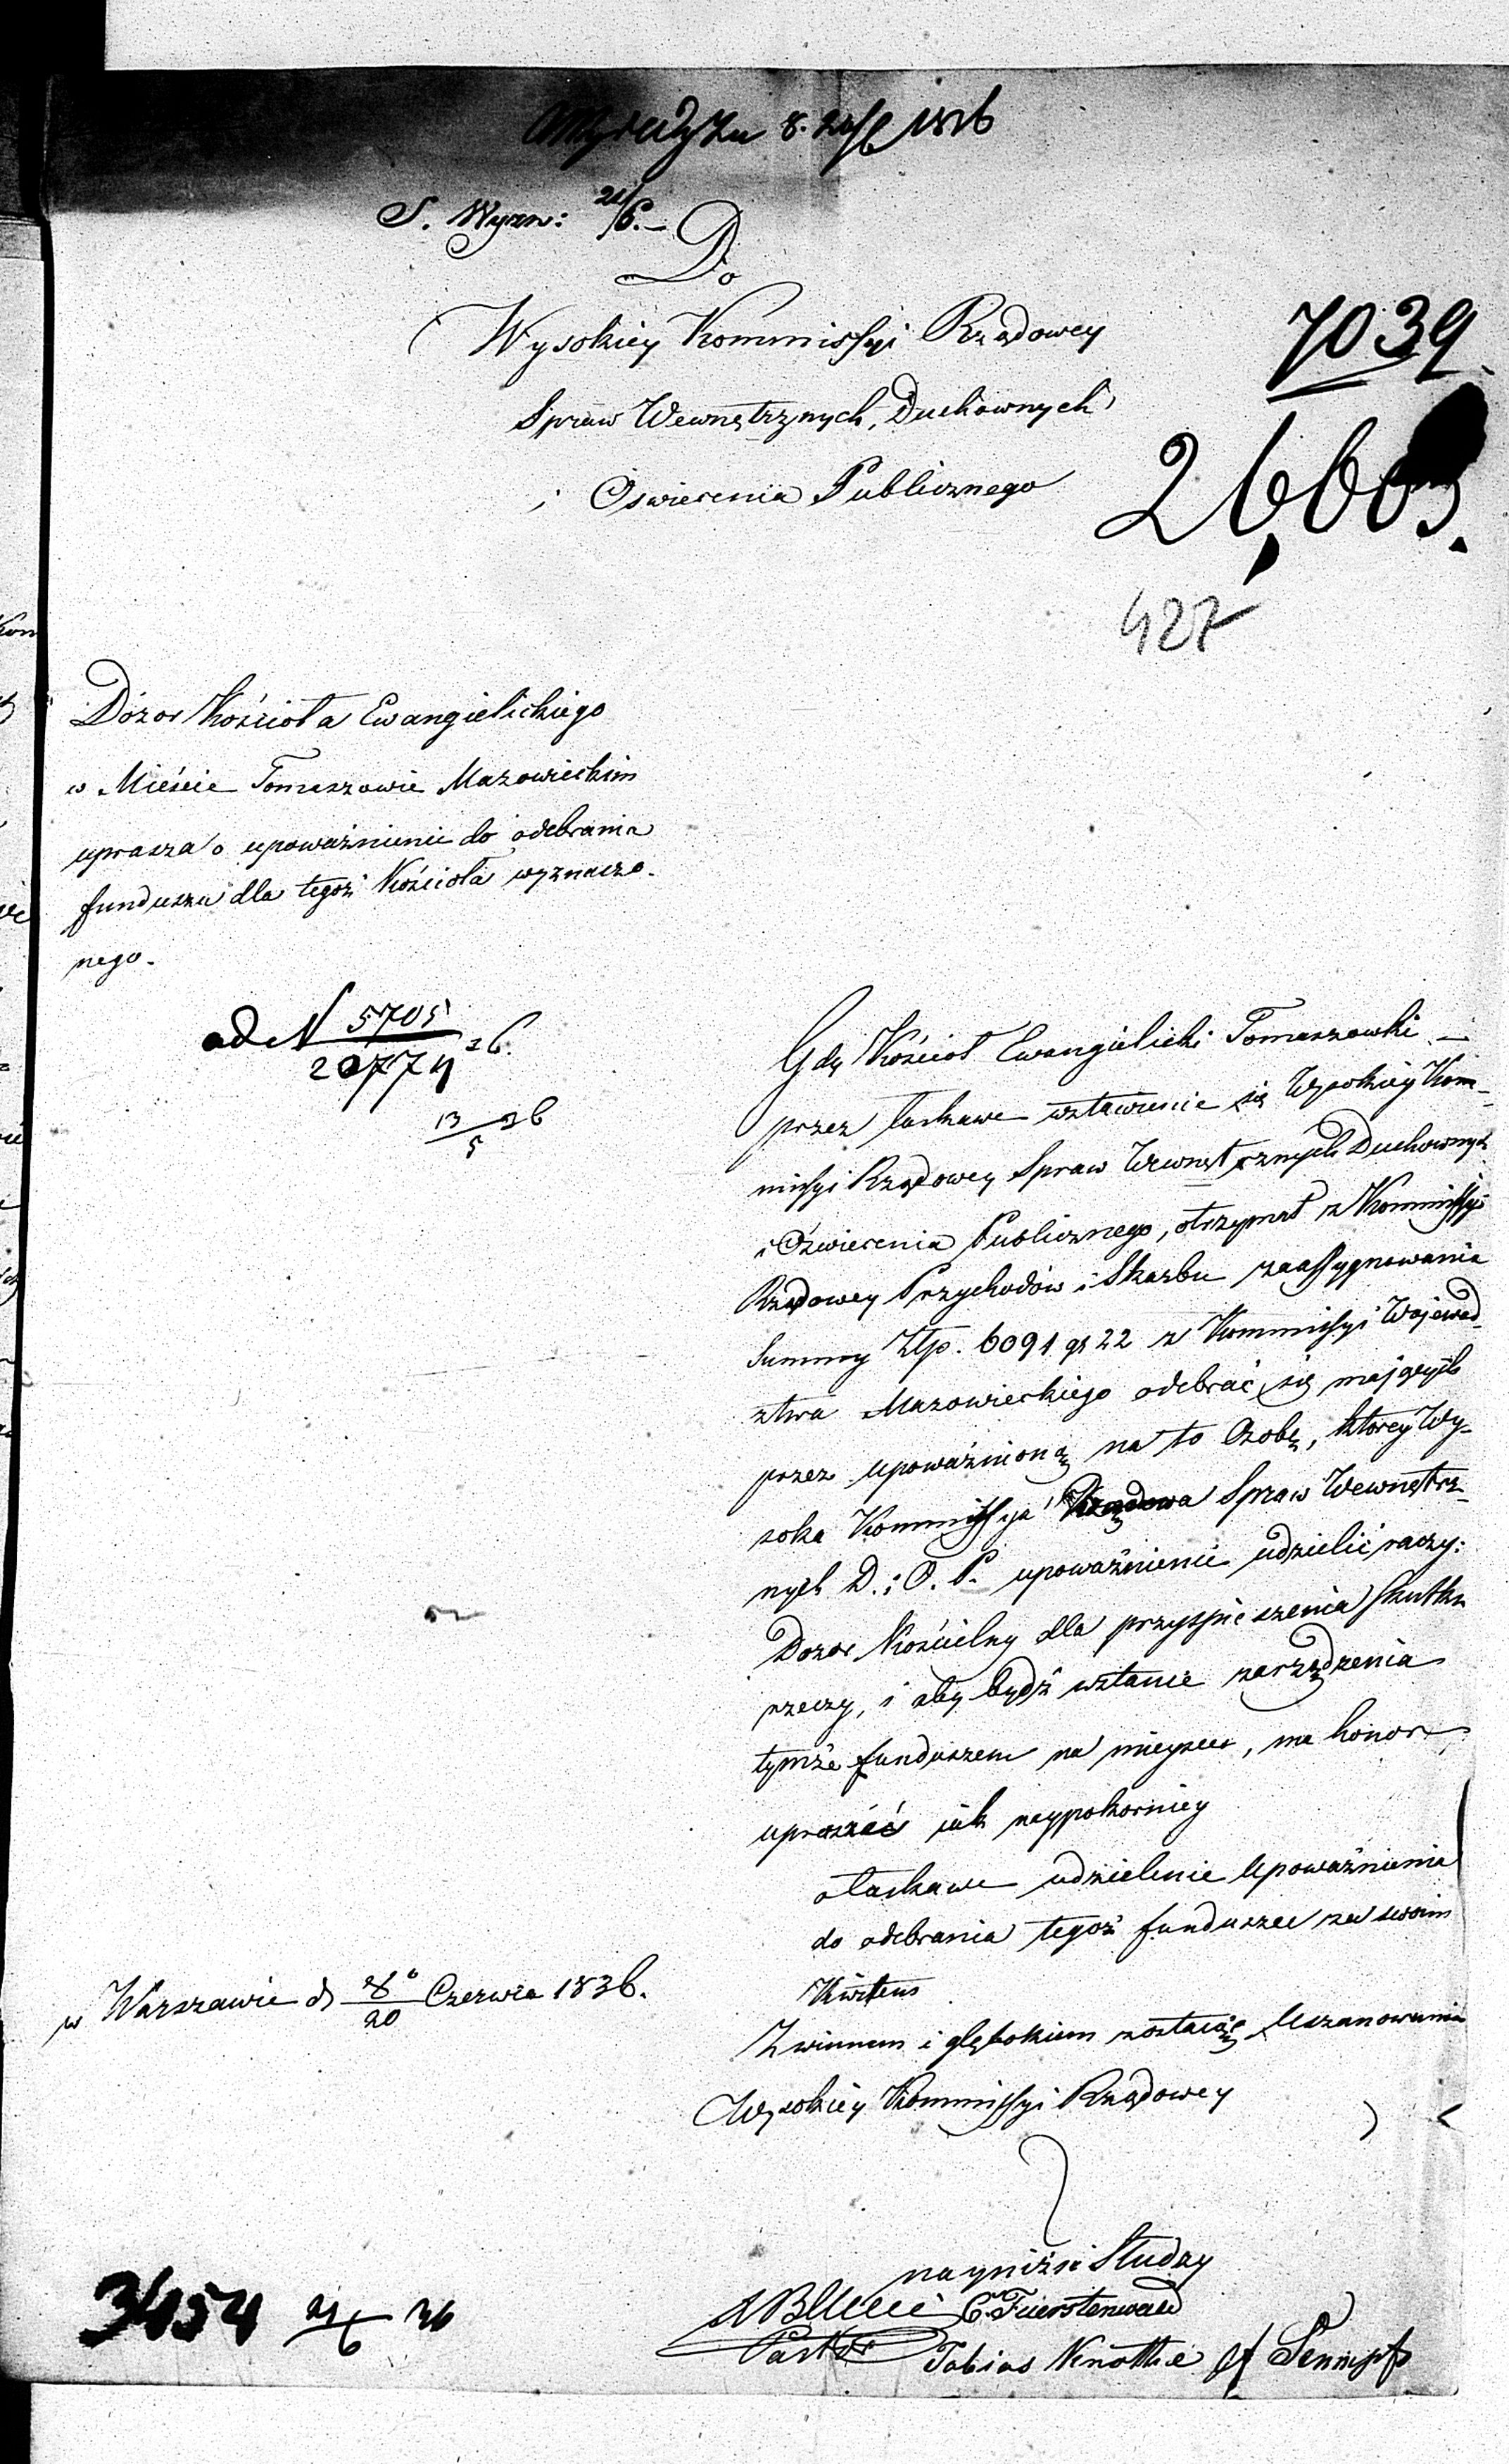 S. Wyzn: 21/6.
Do
Wysokiey Kommissyi Rządowey
Spraw Wewnętrznych, Duchownych
i Oswiecenia Publicznego
7039
26603.
427
Dozor Kościoła Ewangielickiego
w Mieście Tomaszowie Mazowieckim
uprasza o upoważnienie do odebrania
funduszu dla tegoż Kościoła wyznaczo-
nego.
ad N 5705/20774 36.
13/5 36
Gdy Kościoł Ewangielicki Tomaszowski
przez łaskawe wstawienie się Wysokiey Kom-
missyi Rządowey Spraw Wewnętrznych Duchownych
i Oświecenia Publicznego, otrzymał z Kommissyi
Rządowey Przychodów i Skarbu zaassygnowania
Summy Złp. 6091 gr 22 z Kommissyi Wojewód-
ztwa Mazowieckiego odebrać się mających
przez upoważnioną na to Osobę, ktorey Wy-
soka Kommissya Rządowa Spraw Wewnętrz-
nych D. i O. P. upoważnienie udzielić raczy:
Dozor Kościelny dla przyspieszenia skutku
rzeczy, i aby bydź wstanie zarządzenia
tymże funduszem na mieyscu, ma honor
upraszać jak naypokorniey
o łaskawe udzielenie Upoważnienia
do odebrania tegoż funduszu za swoim
Kwitem
Z winnem i głębokiem zostaiąc Uszanowaniem
Wysokiey Kommissyi Rządowey
w Warszawie d 8°/20 Czerwca 1836.
nayniżsi Słudzy
C. Fuerstenwald
Pastor
Tobias Knothe
3454 21/6 36